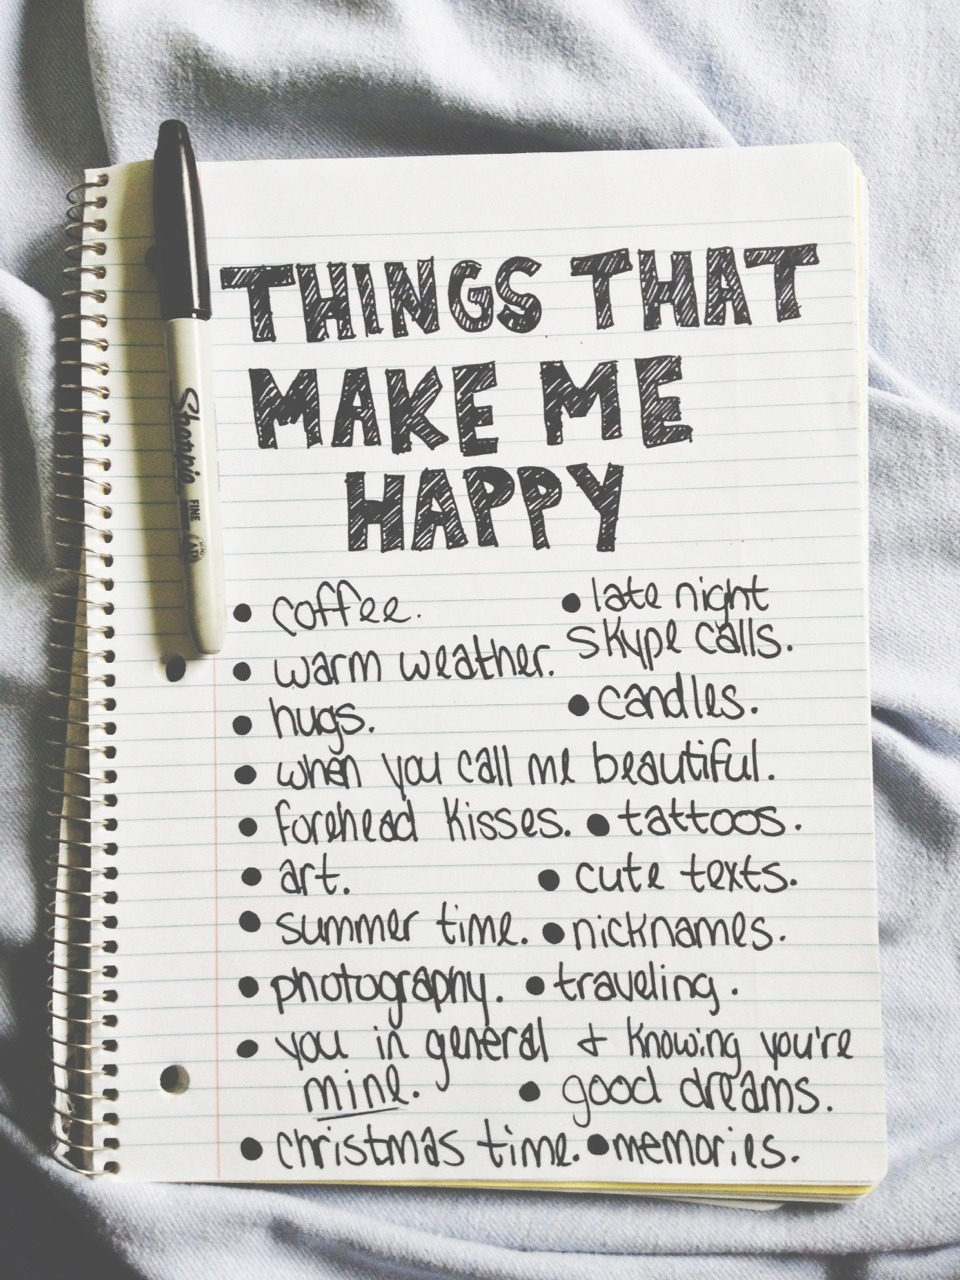 THINGS THAT
MAKE ME
HAPPY
• coffee.
• late night
skype calls.
• warm weather.
• candles.
• hugs.
• when you call me beautiful.
• forehead kisses. • tattoos.
• art. • cute texts.
• summer time. • nicknames.
• photography. • traveling.
• you in general & knowing you're
mine. • good dreams.
• christmas time. • memories.
Sharpie
FINE